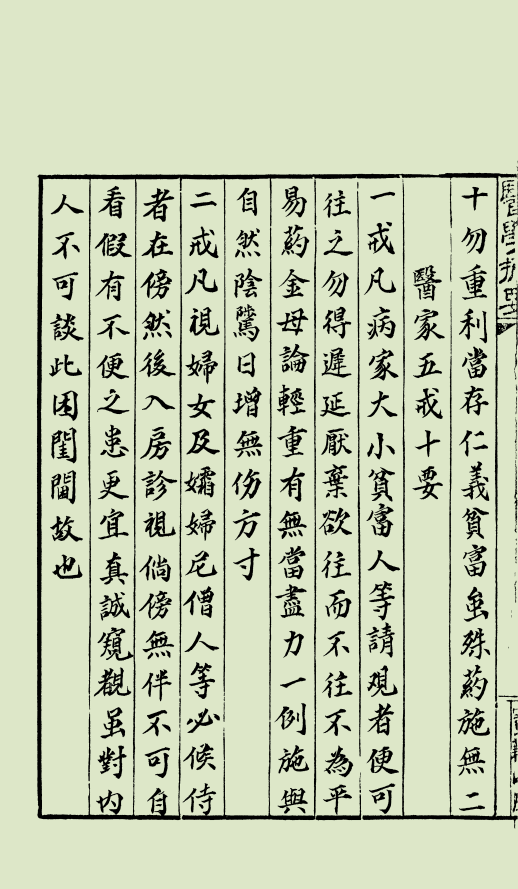 十勿重利當存仁義貧富虽殊葯施無二
醫家五戒十要
一戒凡病家大小貧富人等請覌者便可
往之勿得遲延厭棄欲往而不往不為平
易葯金毋論輕重有無當盡力一例施與
自然陰騭日增無伤方寸
二戒凡視婦女及孀婦尼僧人等必候侍
者在傍然後入房診視倘傍無伴不可自
看假有不便之患更宜真誠窺觀虽對内
人不可談此因閨閫故也